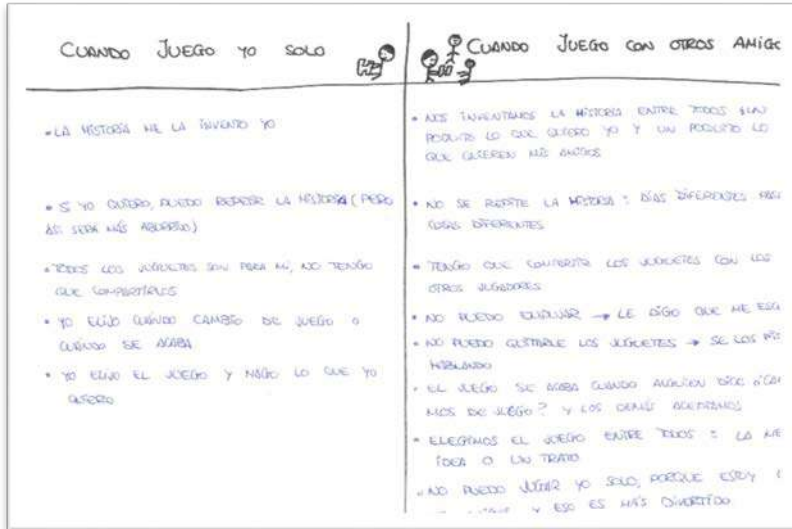 CUANDO JUEGO YO SOLO
• LA HISTORIA ME LA INVENTO YO
• SI YO QUIERO, PUEDO REPETIR LA HISTORIA (PERO
ASÍ SERÁ MÁS ABURRIDO)
• TODOS LOS JUGUETES SON PARA MI, NO TENGO
QUE COMPARTIRLOS
• YO ELIJO CUÁNDO CAMBIO DE JUEGO O
CUÁNDO SE ACABA
• YO ELIJO EL JUEGO Y HAGO LO QUE YO
QUIERO
CUANDO JUEGO CON OTROS AMIGO
• NOS INVENTAMOS LA HISTORIA ENTRE TODOS: UN
POQUITO LO QUE QUIERO YO Y UN POQUITO LO
QUE QUIEREN MIS AMIGOS
• NO SE REPITE LA HISTORIA: DÍAS DIFERENTES
COSAS DIFERENTES
• TENGO QUE COMPARTIR LOS JUGUETES CON LOS
OTROS JUGADORES
• NO PUEDO EMPUJAR → LE DIGO QUE ME
• NO PUEDO QUITARLE LOS JUGUETES → SE LOS
HABLANDO
• EL JUEGO SE ACABA CUANDO ALGUIEN DICE
MOS DE JUEGO? Y LOS DEMÁS ACEPTAMOS
• ELEGIMOS EL JUEGO ENTRE TODOS: LA
IDEA O UN TRATO
• NO PUEDO JUGAR YO SOLO, PORQUE ESTOY
Y ESO ES MÁS DIVERTIDO